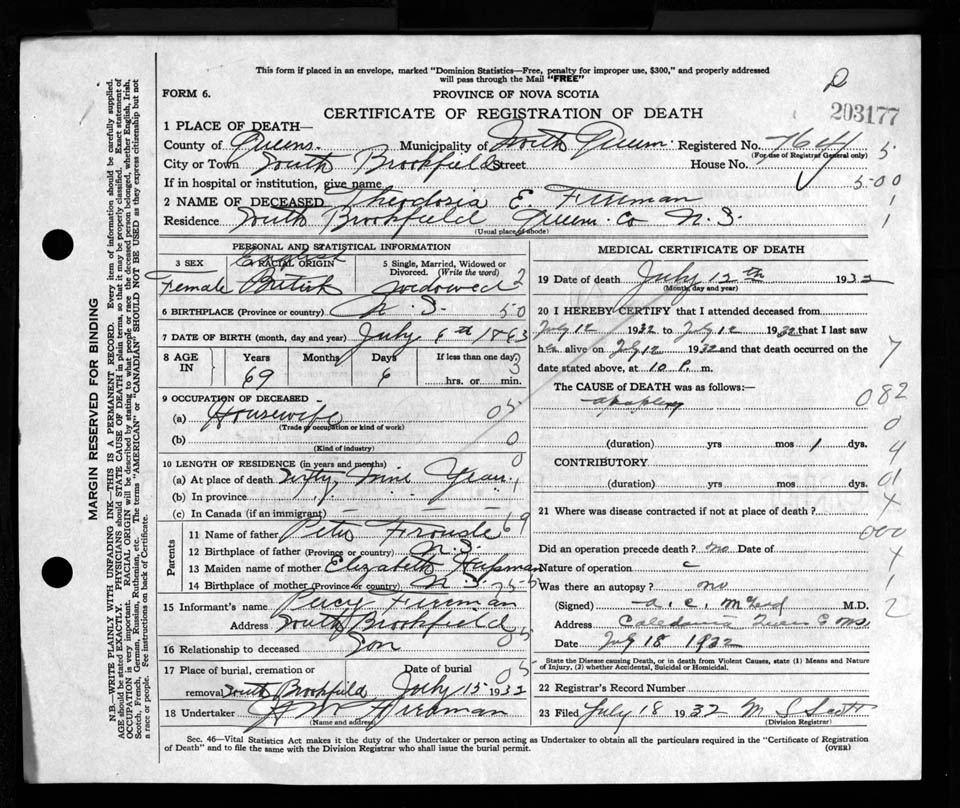 This form if placed in an envelope, marked "Dominion Statistics—Free, penalty for improper use, $300," and properly addressed
will pass through the Mail "FREE"
FORM 6.
PROVINCE OF NOVA SCOTIA
203177
CERTIFICATE OF REGISTRATION OF DEATH
1 PLACE OF DEATH—
County of Queens. Municipality of North Queens. Registered No. 764
(For use of Registrar General only)
5
City or Town South Brookfield Street House No.
If in hospital or institution, give name
500
2 NAME OF DECEASED Theodosia E. Freeman
1
Residence South Brookfield Queens. Co N. S.
(Usual place of abode)
1
PERSONAL AND STATISTICAL INFORMATION
3 SEX
Female
4 RACIAL ORIGIN
English
British
5 Single, Married, Widowed or
Divorced. (Write the word)
Widowed 2
6 BIRTHPLACE (Province or country) N. S. 50
7 DATE OF BIRTH (month, day and year) July 6th 1863
8 AGE
IN
Years
69
Months
Days
6
If less than one day,
hrs. or min.
9 OCCUPATION OF DECEASED
(a) Housewife 05
(Trade, occupation or kind of work)
(b) 0
(Kind of industry)
10 LENGTH OF RESIDENCE (in years and months) 0
(a) At place of death Sixty Nine Years
(b) In province
(c) In Canada (if an immigrant) 69
Parents
11 Name of father Peter
12 Birthplace of father (Province or country) N. S.
13 Maiden name of mother Elizabeth
14 Birthplace of mother (Province or country) N S
15 Informant's name Percy Freeman
Address South Brookfield
16 Relationship to deceased Son
17 Place of burial, cremation or
removal South Brookfield
Date of burial
July 15 1932
05
18 Undertaker Freeman
(Name and address)
MEDICAL CERTIFICATE OF DEATH
19 Date of death July 12th 1932
(Month, day and year)
20 I HEREBY CERTIFY that I attended deceased from
July 12 1932 to July 12 1932 that I last saw
her alive on July 12 1932 and that death occurred on the
date stated above, at 10 P. m.
7
The CAUSE of DEATH was as follows:—
apoplexy
082
0
(duration) yrs mos 1 dys.
4
CONTRIBUTORY
(duration) yrs mos dys.
21 Where was disease contracted if not at place of death?
000
Did an operation precede death? no Date of
Nature of operation
Was there an autopsy? no
2
(Signed) a. c. M.D.
Address Caledonia Queens Co NS.
Date July 18 1932
State the Disease causing Death, or in death from Violent Causes, state (1) Means and
Nature of Injury, (2) whether Accidental, Suicidal or Homicidal.
22 Registrar's Record Number
23 Filed July 18 1932 M S Scott
(Division Registrar)
Sec. 46—Vital Statistics Act makes it the duty of the Undertaker or person acting as Undertaker to obtain all the particulars required in the "Certificate of Registration
of Death" and to file the same with the Division Registrar who shall issue the burial permit.
(OVER)
MARGIN RESERVED FOR BINDING
N.B.—WRITE PLAINLY WITH UNFADING INK—THIS IS A PERMANENT RECORD. Every item of information should be carefully supplied.
AGE should be stated EXACTLY. PHYSICIANS should STATE CAUSE OF DEATH in plain terms, so that it may be properly classified. Exact statement of
OCCUPATION is very important. RACIAL ORIGIN will be described by stating to what people or race the deceased person belonged, whether English, Irish,
Scotch, French, German, Russian, Ruthenian, etc. The terms "AMERICAN" or "CANADIAN" SHOULD NOT BE USED as they express citizenship but not
a race or people. See instructions on back of Certificate.